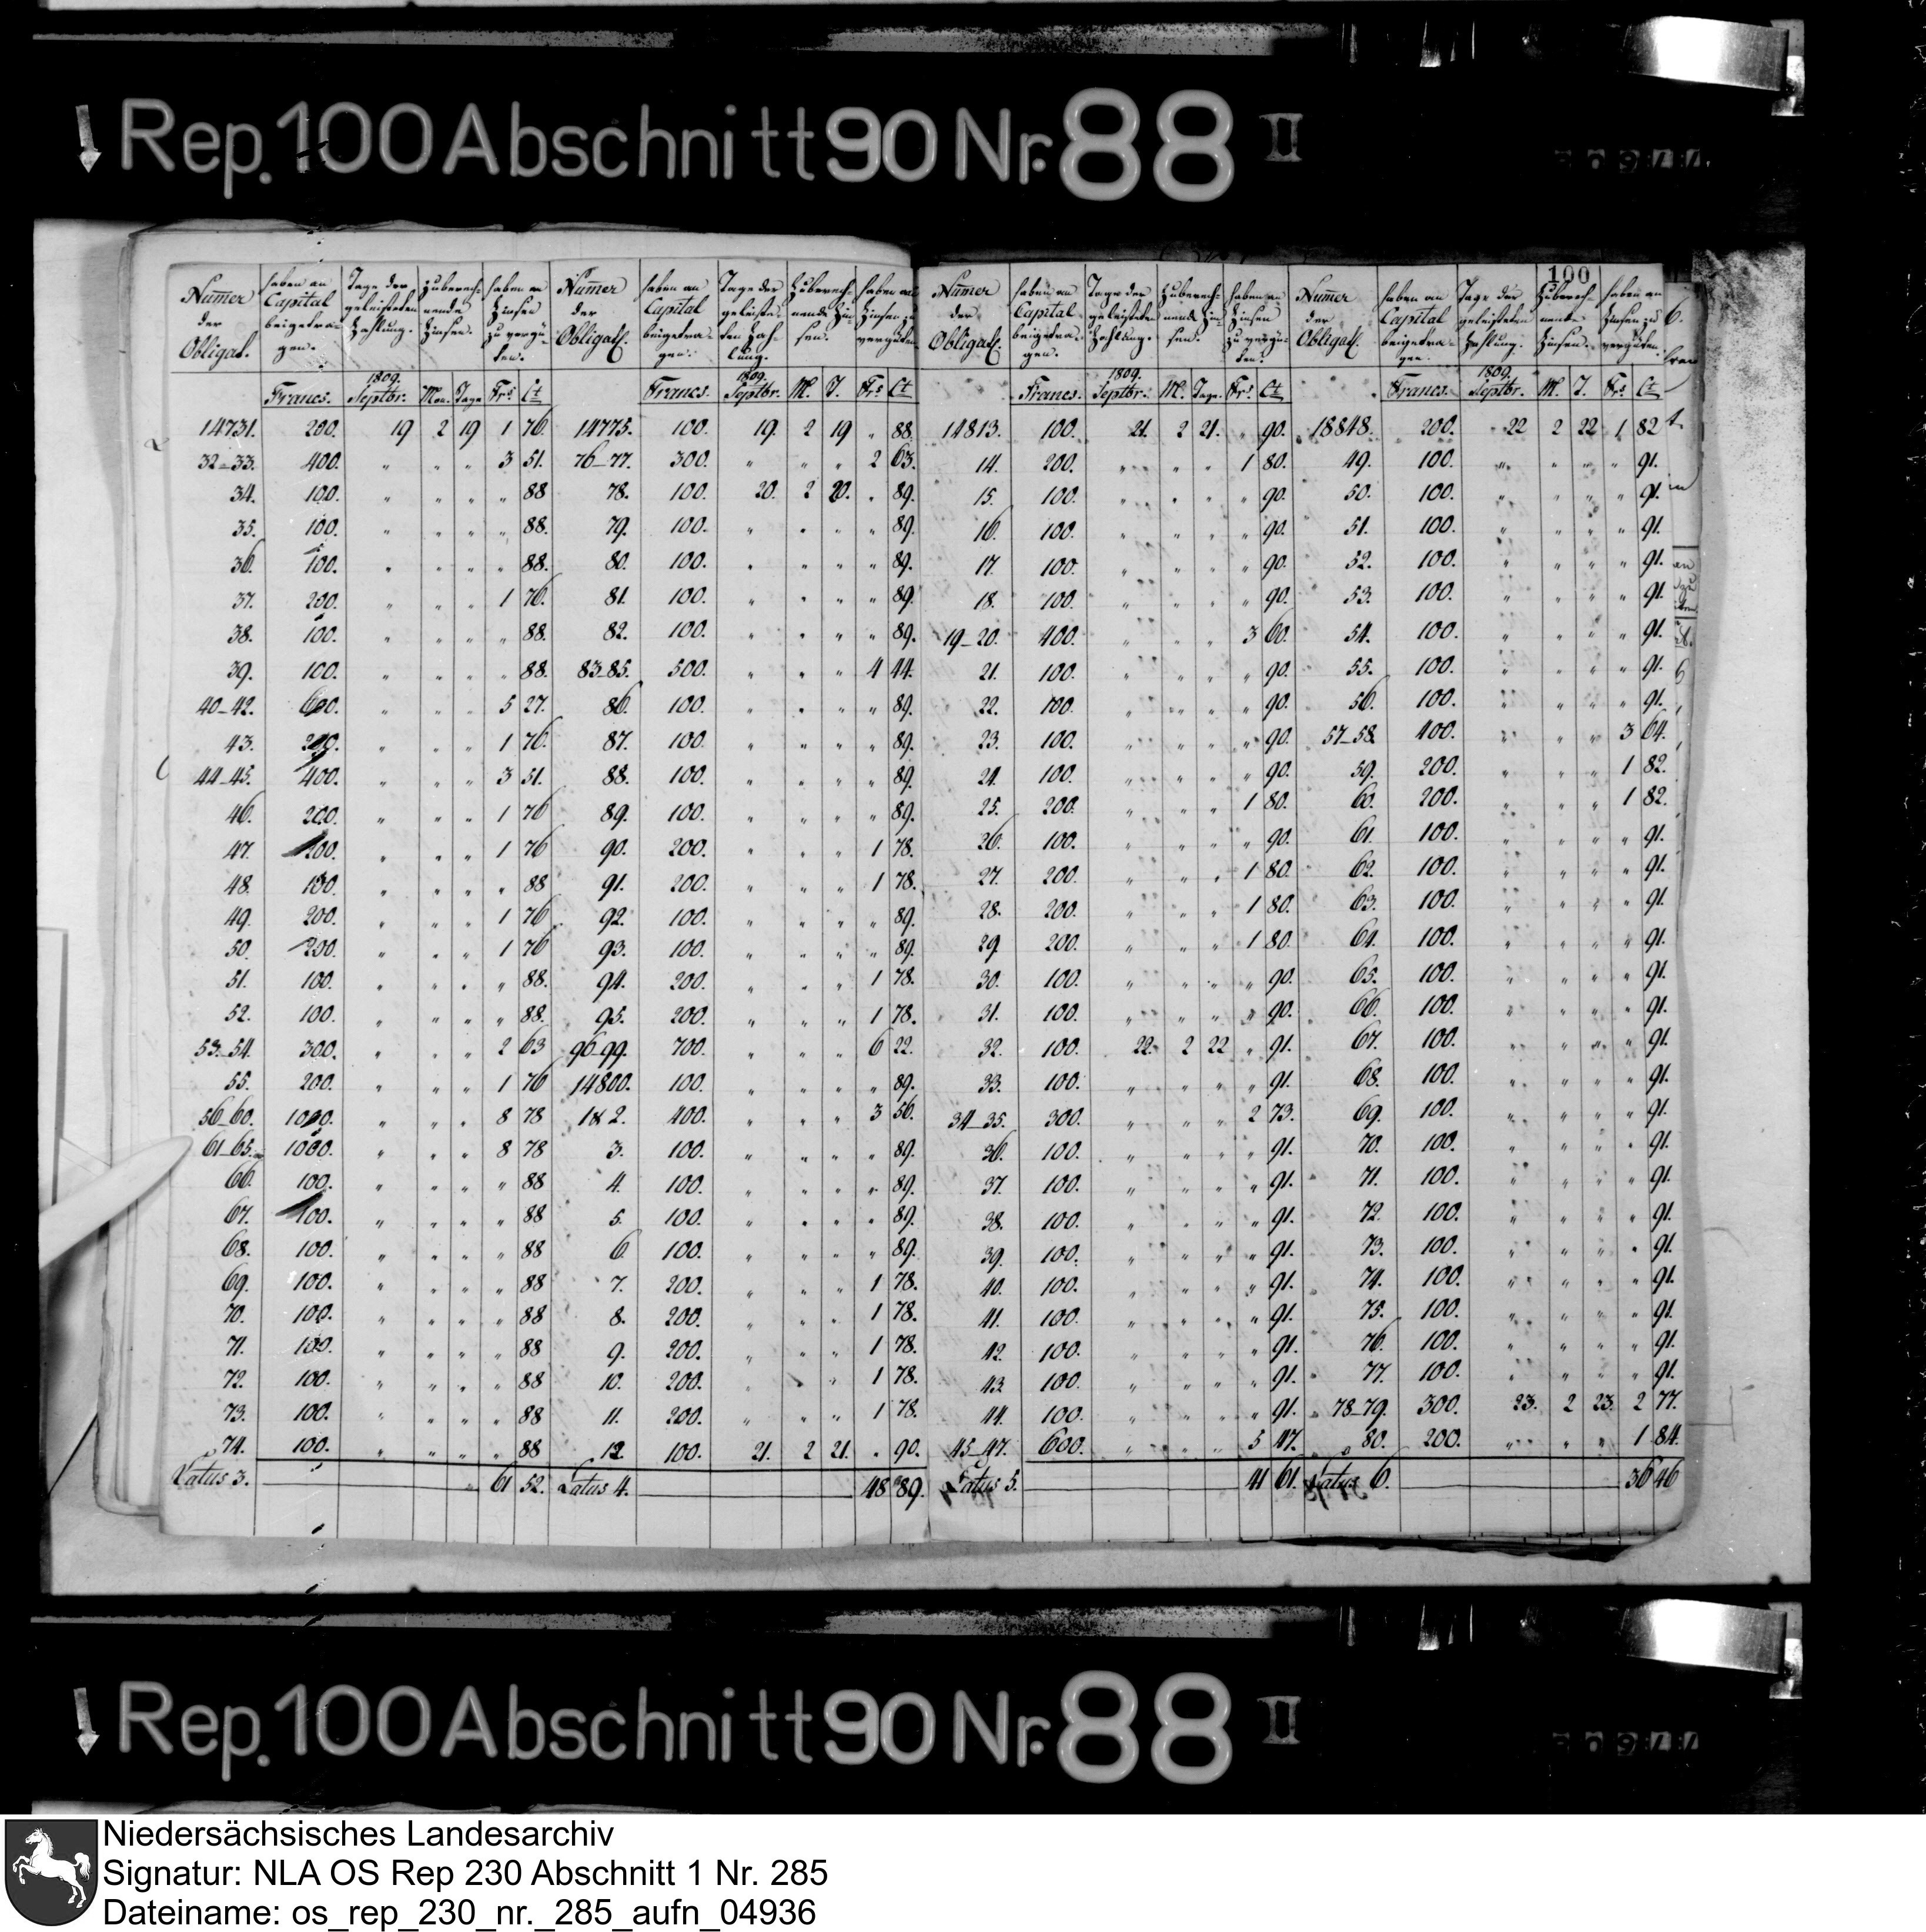 Rep. 100 Abschnitt 90 Nr. 88 II
100
Numer der Obligat. | haben an Capital beigetragen. | Tage der geleisteten Zahlung. | zuberechnende Zinsen. | haben an Zinsen zu vergüten.
Numer der Obligat. | haben an Capital beigetragen. | Tage der geleisteten Zahlung. | zuberechnende Zinsen. | haben an Zinsen zu vergüten.
Numer der Obligat. | haben an Capital beigetragen. | Tage der geleisteten Zahlung. | zuberechnende Zinsen. | haben an Zinsen zu vergüten.
Numer der Obligat. | haben an Capital beigetragen. | Tage der geleisteten Zahlung. | zuberechnende Zinsen. | haben an Zinsen zu vergüten.
Francs. 1809. Septbr. Mon. Tage Frs Ct
14731. 200. 19 2 19 1 76
32-33. 400. " " " 3 51.
34. 100. " " " " 88
35. 100. " " " " 88.
36. 100. " " " " 88.
37. 200. " " " 1 76.
38. 100. " " " " 88.
39. 100. " " " " 88.
40-42. 600. " " " 5 27.
43. 200. " " " 1 76.
44-45. 400. " " " 3 51.
46. 200. " " " 1 76
47. 200. " " " 1 76
48. 100. " " " " 88
49. 200. " " " 1 76
50. 200. " " " 1 76
51. 100. " " " " 88.
52. 100. " " " " 88.
53-54. 300. " " " 2 63
55. 200. " " " 1 76
56-60. 1000. " " " 8 78
61-65. 1000. " " " 8 78
66. 100. " " " " 88
67. 100. " " " " 88
68. 100. " " " " 88
69. 100. " " " " 88
70. 100. " " " " 88
71. 100. " " " " 88
72. 100. " " " " 88
73. 100. " " " " 88
74. 100. " " " " 88
Latus 3. 61 52.
Francs. 1809. Septbr. M. T. Frs Ct
14775. 100. 19. 2 19 " 88.
76-77. 300. " " " 2 63.
78. 100. 20. 2 20. " 89.
79. 100. " " " " 89.
80. 100. " " " " 89.
81. 100. " " " " 89.
82. 100. " " " " 89.
83-85. 500. " " " 4 44.
86. 100. " " " " 89.
87. 100. " " " " 89.
88. 100. " " " " 89.
89. 100. " " " " 89.
90. 200. " " " 1 78.
91. 200. " " " 1 78.
92. 100. " " " " 89.
93. 100. " " " " 89.
94. 200. " " " 1 78.
95. 200. " " " 1 78.
96-99. 700. " " " 6 22.
14800. 100. " " " " 89.
1 & 2. 400. " " " 3 56.
3. 100. " " " " 89.
4. 100. " " " " 89.
5. 100. " " " " 89.
6. 100. " " " " 89.
7. 200. " " " 1 78.
8. 200. " " " 1 78.
9. 200. " " " 1 78.
10. 200. " " " 1 78.
11. 200. " " " 1 78.
12. 100. 21. 2 21. " 90.
Latus 4. 48 89.
Francs. 1809. Septbr. M. Tage. Frs Ct
14813. 100. 21. 2 21. " 90.
14. 200. " " " 1 80.
15. 100. " " " " 90.
16. 100. " " " " 90.
17. 100. " " " " 90.
18. 100. " " " " 90.
19-20. 400. " " " 3 60.
21. 100. " " " " 90.
22. 100. " " " " 90.
23. 100. " " " " 90.
24. 100. " " " " 90.
25. 200. " " " 1 80.
26. 100. " " " " 90.
27. 200. " " " 1 80.
28. 200. " " " 1 80.
29. 200. " " " 1 80.
30. 100. " " " " 90.
31. 100. " " " " 90.
32. 100. 22. 2 22 " 91.
33. 100. " " " " 91.
34-35. 300. " " " 2 73.
36. 100. " " " " 91.
37. 100. " " " " 91.
38. 100. " " " " 91.
39. 100. " " " " 91.
40. 100. " " " " 91.
41. 100. " " " " 91.
42. 100. " " " " 91.
43 100. " " " " 91.
44. 100. " " " " 91.
45-47. 600. " " " 5 47.
Latus 5. 41 61.
Francs. 1809. Septbr. M. T. Frs Ct
18848. 200. 22 2 22 1 82
49. 100. " " " " 91.
50. 100. " " " " 91.
51. 100. " " " " 91.
52. 100. " " " " 91.
53. 100. " " " " 91.
54. 100. " " " " 91.
55. 100. " " " " 91.
56. 100. " " " " 91.
57-58. 400. " " " 3 64.
59. 200. " " " 1 82.
60. 200. " " " 1 82.
61. 100. " " " " 91.
62. 100. " " " " 91.
63. 100. " " " " 91.
64. 100. " " " " 91.
65. 100. " " " " 91.
66. 100. " " " " 91.
67. 100. " " " " 91.
68. 100. " " " " 91.
69. 100. " " " " 91.
70. 100. " " " " 91.
71. 100. " " " " 91.
72. 100. " " " " 91.
73. 100. " " " " 91.
74. 100. " " " " 91.
75. 100. " " " " 91.
76. 100. " " " " 91.
77. 100. " " " " 91.
78-79. 300. 23. 2 23. 2 77.
80. 200. " " " 1 84.
Latus 6. 36 46
Rep. 100 Abschnitt 90 Nr. 88 II
Niedersächsisches Landesarchiv
Signatur: NLA OS Rep 230 Abschnitt 1 Nr. 285
Dateiname: os_rep_230_nr._285_aufn_04936